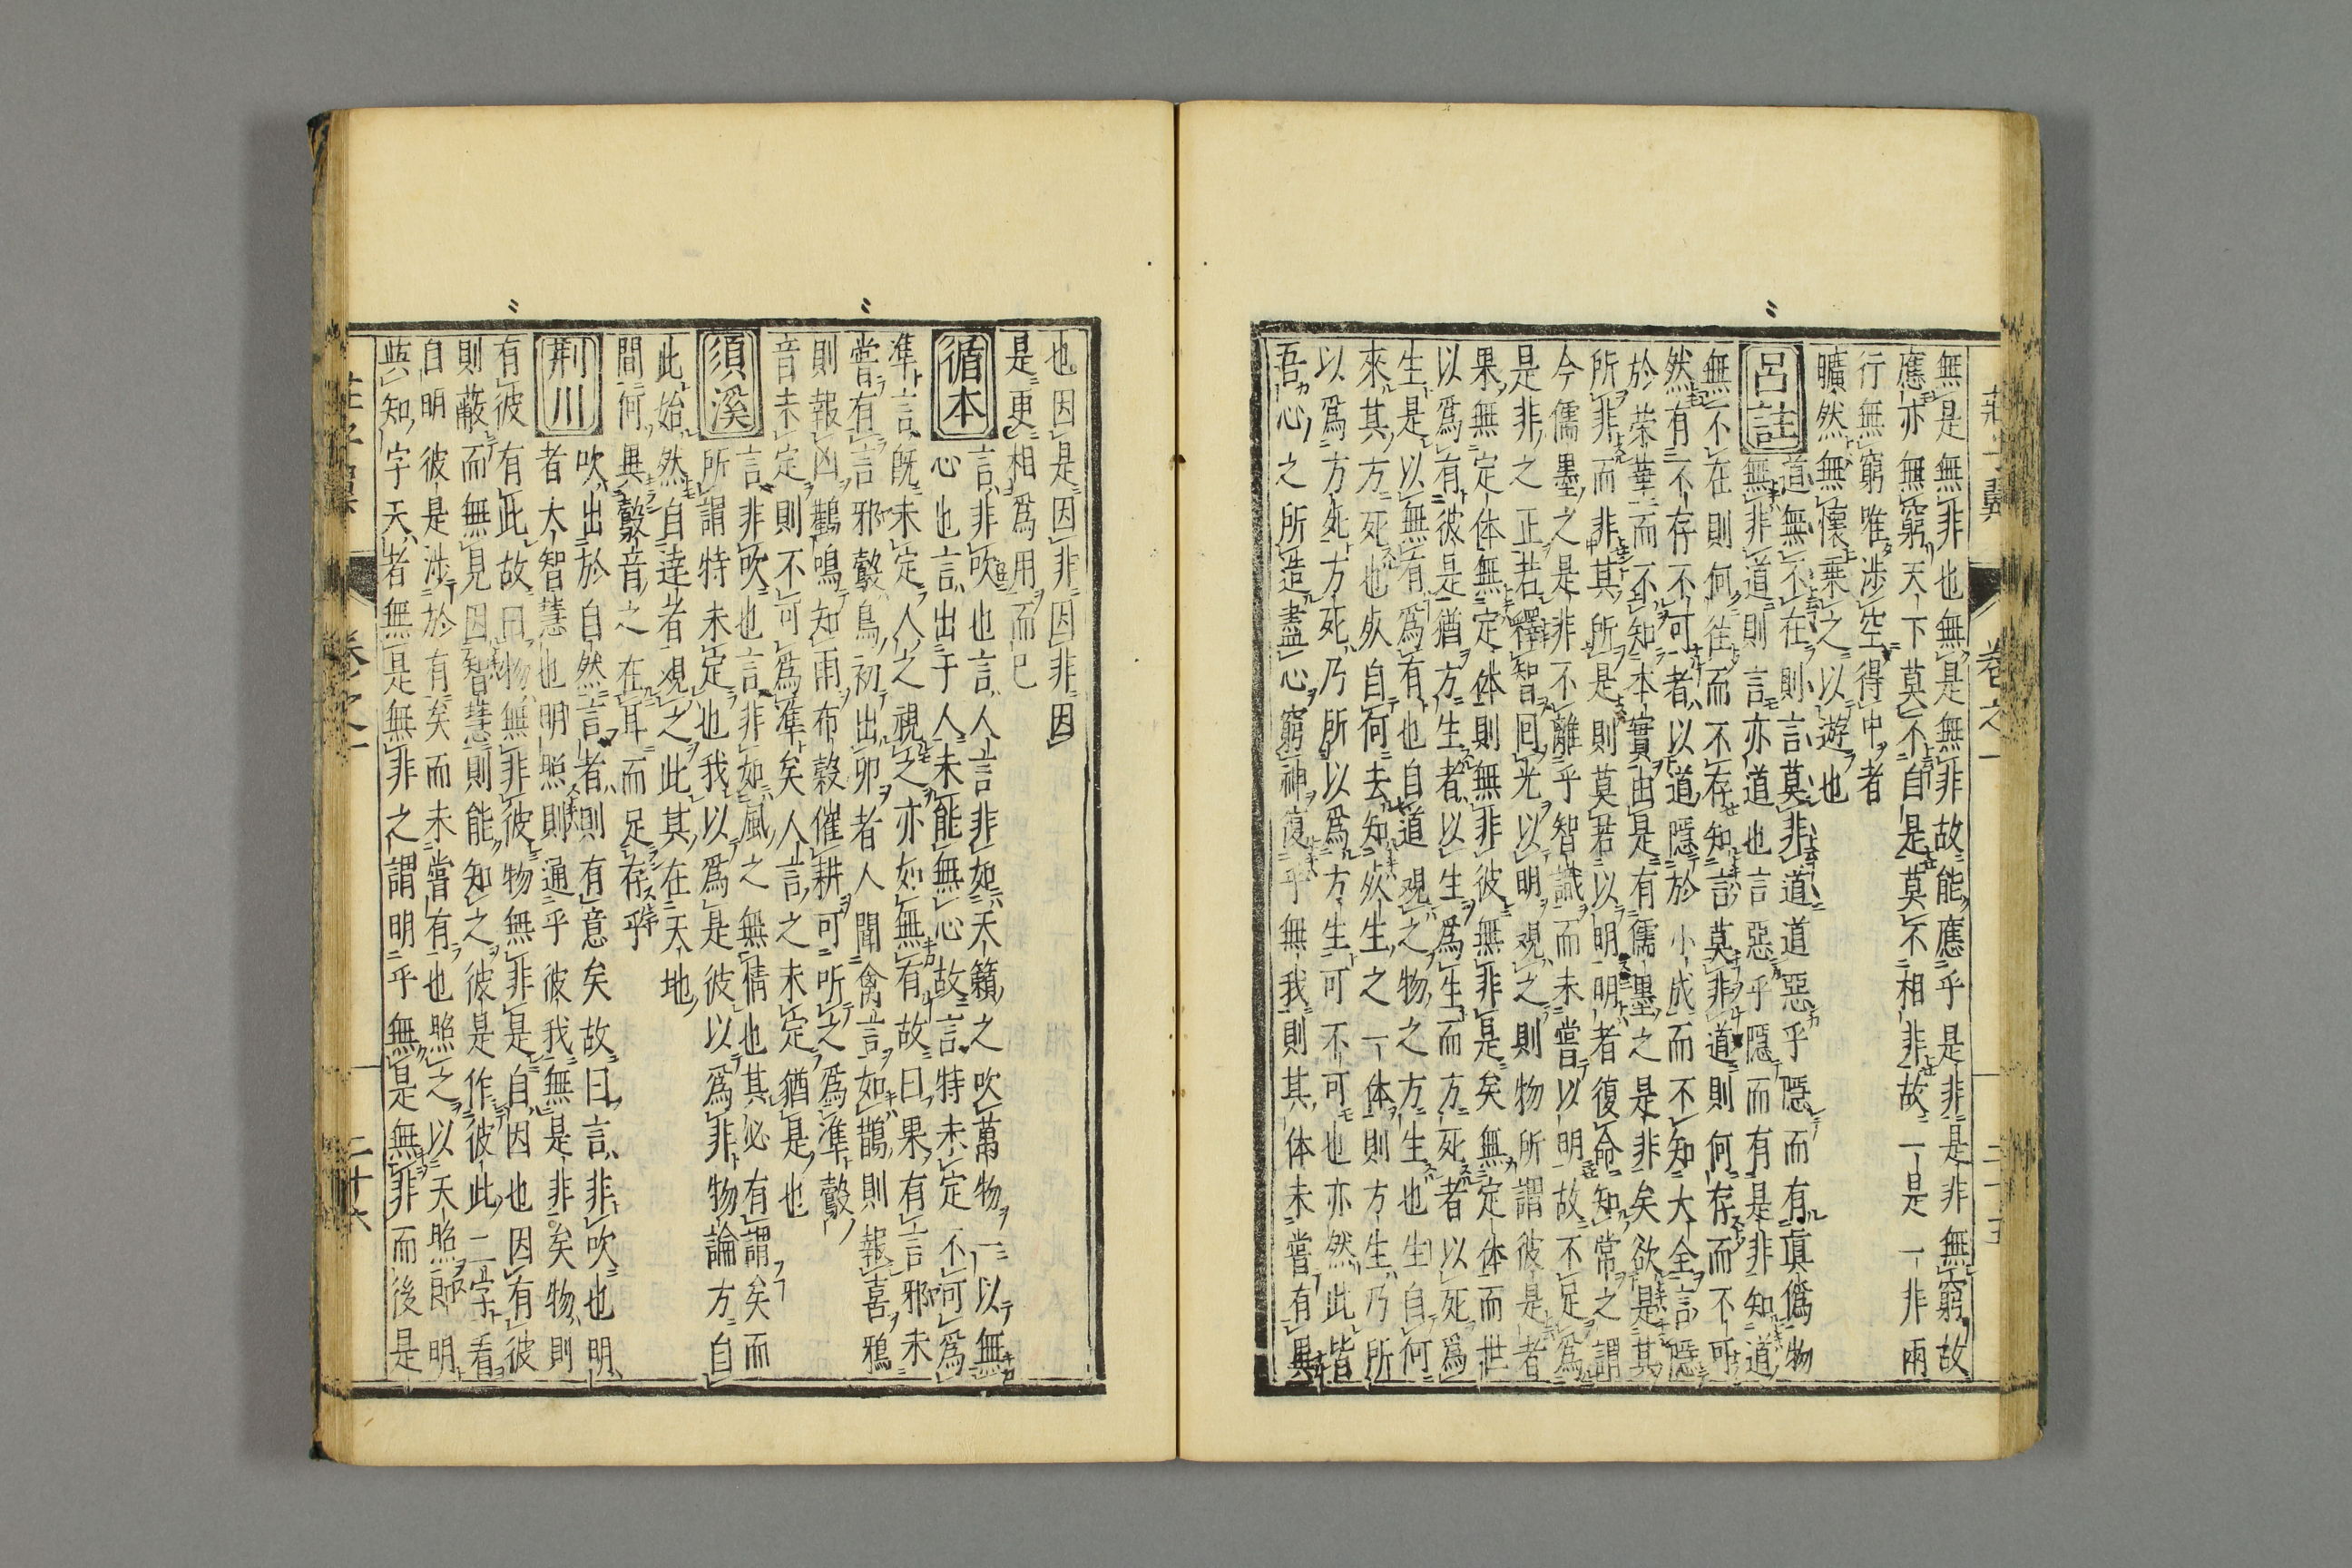 無是無非也無是無非故能應乎是非是非無窮故
應亦無窮天下莫不自是莫不相非故一是一非兩
行無窮唯涉空得中者
曠然無懷乘之以遊也
呂註
道無不在則言莫非道道惡乎隱而有真偽物
無非道則言亦道也言惡乎隱而有是非知道
無不在則何徃而不存知言莫非道則何存而不可
然有不存不可者以道隱於小成而不知大全言隱
於荣華而不知本實由是有儒墨之是非矣欲是其
所非而非其所是則莫若以明明者復命知常之謂
今儒墨之是非不離乎智識而未嘗以明故不足為
是非之正若釋智回光以明觀之則物所謂彼是者
果無定体無定体則無非彼無非是矣無定体而世
以為有彼是猶方生者以生為生而方死者以死為
生是以無有為有也自道觀之物之方生也生自何
來其方死也死自何去知死生之一体則方生乃所
以為方死方死乃所以為方生可不可也亦然此皆
吾心之所造盡心窮神復乎無我則其体未嘗有異
莊子翼 卷之一 二十五
也因是因非因非因
是更相為用而已
循本
言非吹也言人言非如天籟之吹萬物一以無
心也言出于人未能無心故言特未定不可為
凖言既未定人之視之亦如無有故曰果有言邪未
嘗有言邪鷇鳥初出卵者人聞禽言如鵲則報喜鴉
則報凶鸛鳴知雨布穀催耕可听之為凖鷇
音未定則不可為凖矣人言之未定猶是也
須溪
言非吹也言非如風之無情也其必有謂矣而
所謂特未定也我以為是彼以為非物論方自
此始然自達者觀之此其在天地
間何異鷇音之在耳而足存乎
荆川
吹出於自然言者則有意矣故曰言非吹也明
者大智慧也明照則通乎彼我無是非矣物則
有彼有此故曰物無非彼物無非是自因也因有彼
則蔽而無見因智慧則能知之彼是作彼此二字看
自明彼是涉於有矣而未嘗有也照之以天照即明
與知字天者無是無非之謂明乎無是無非而後是
莊子翼 卷之一 二十六